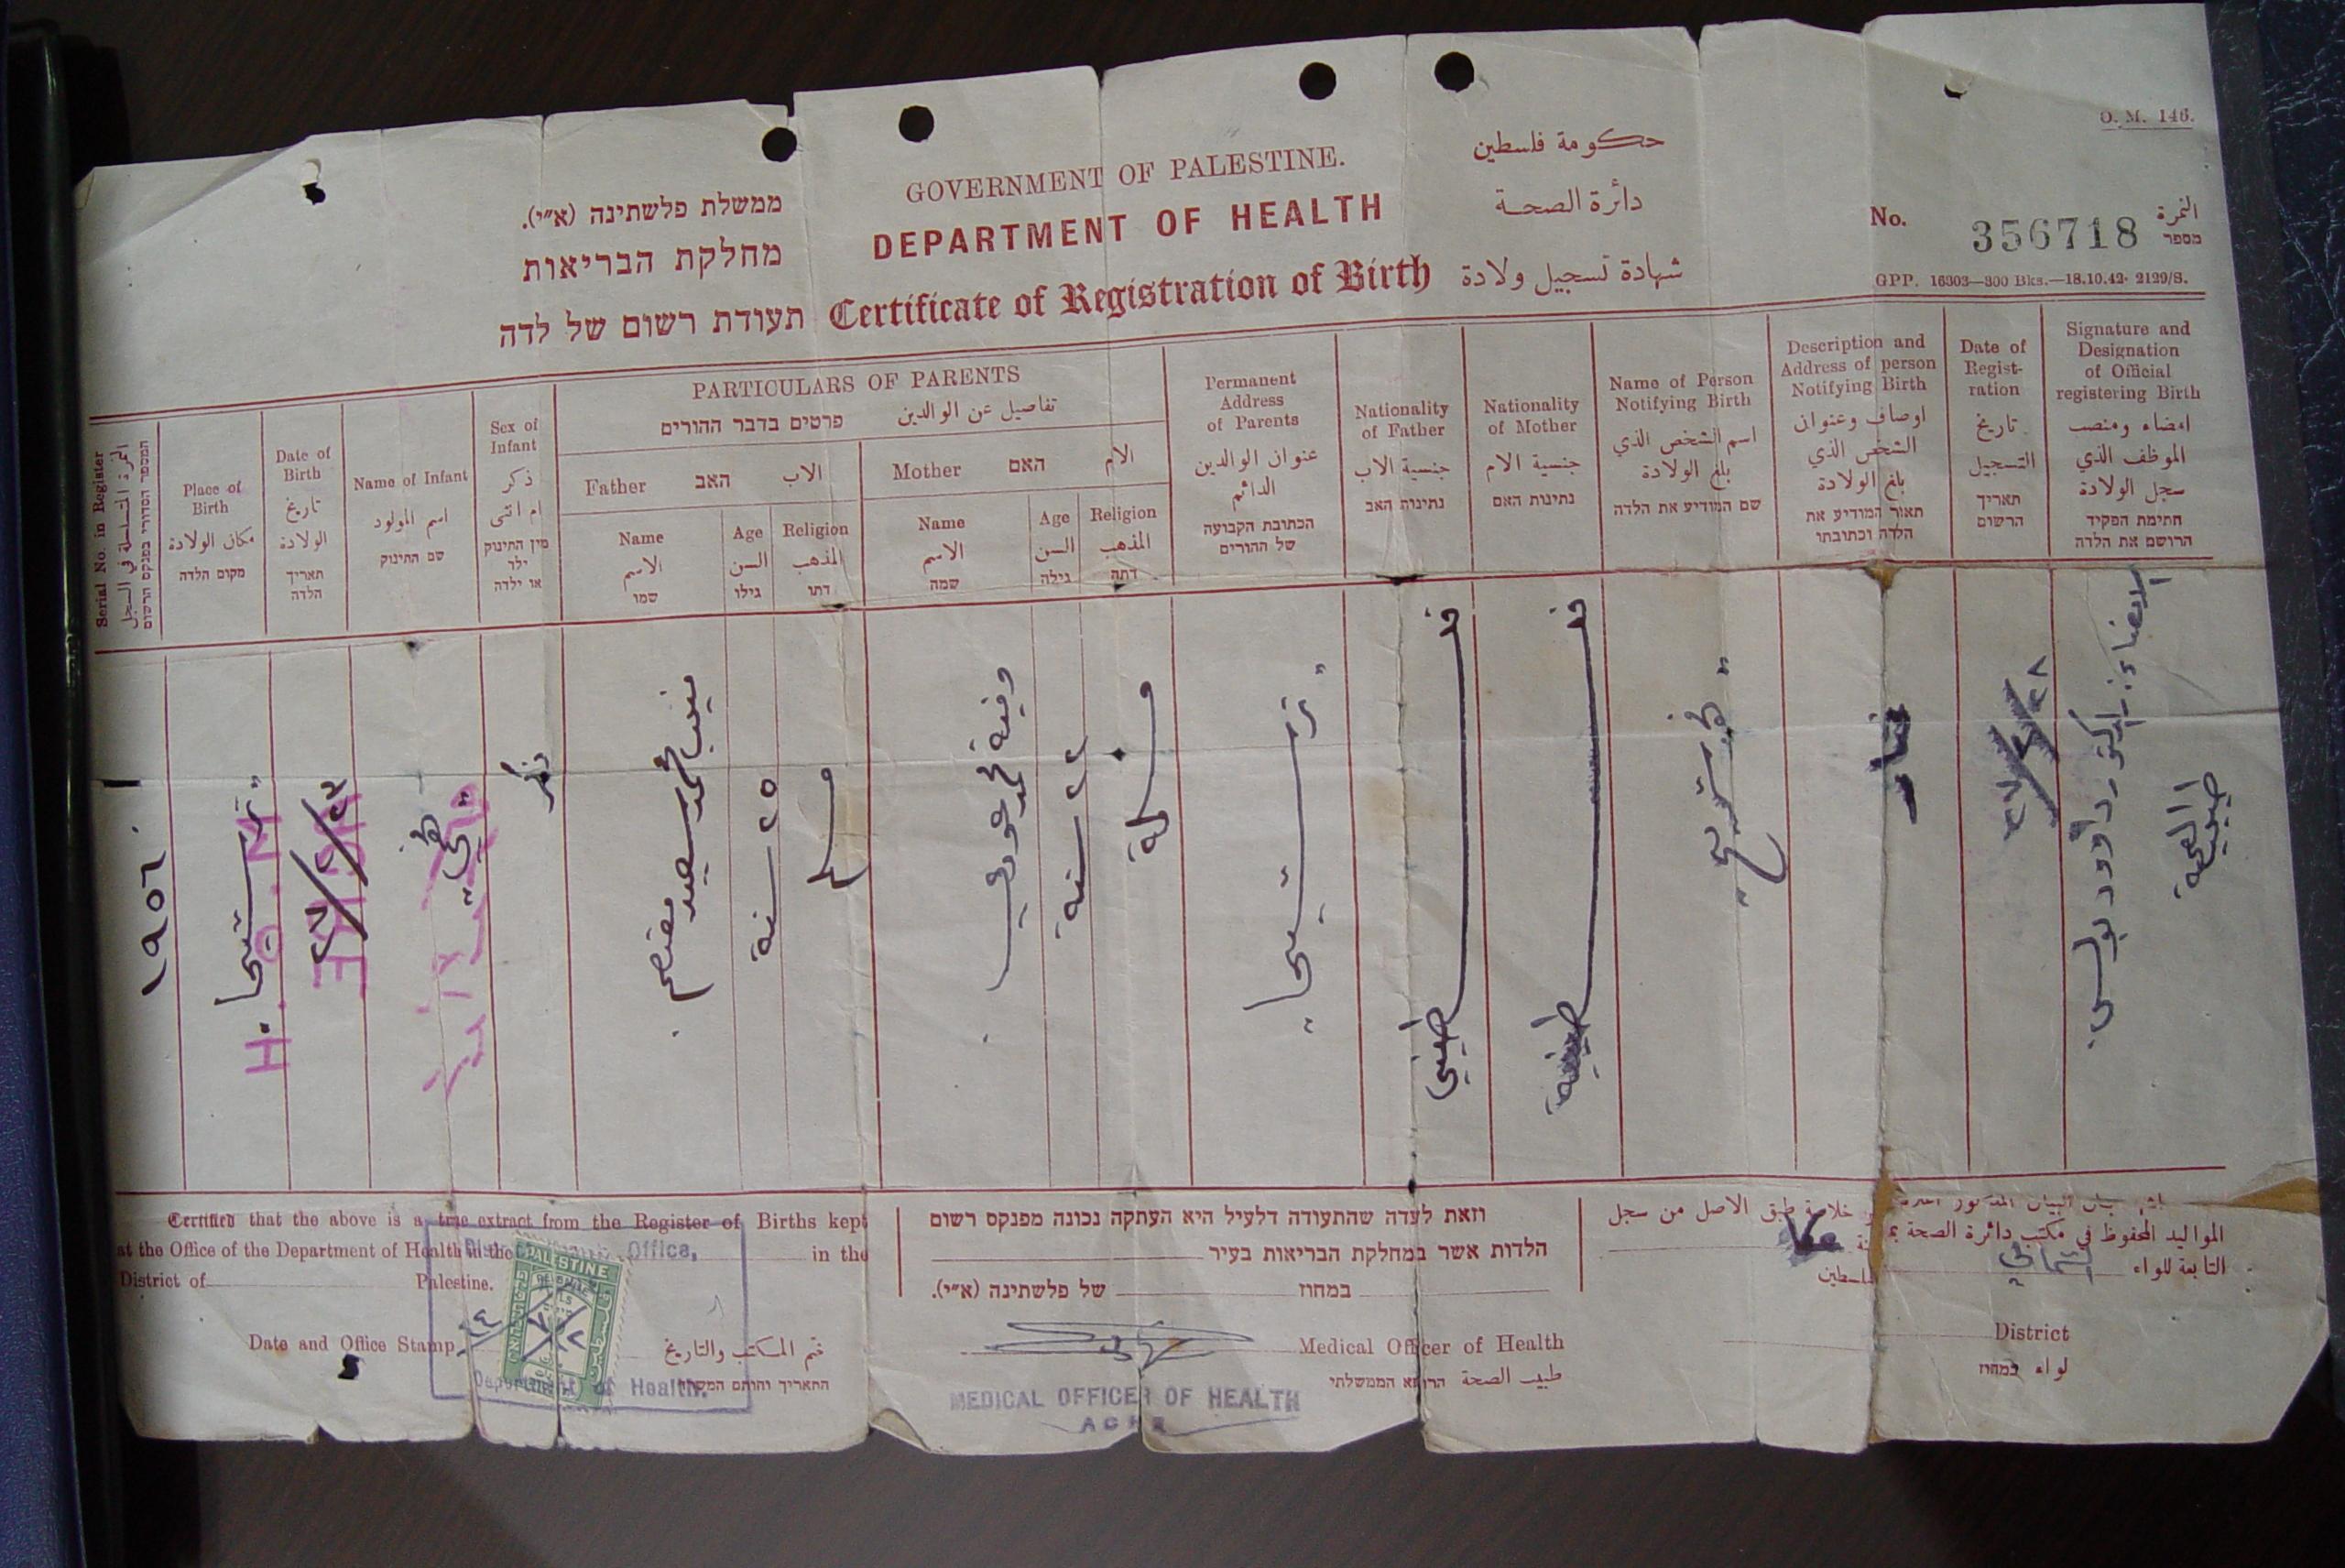 O. M. 146.
ממשלת פלשתינה (א״י).
GOVERNMENT OF PALESTINE.
حكومة فلسطين
מחלקת הבריאות
DEPARTMENT OF HEALTH
دائرة الصحة
No. 356718 النمرة
מספר
תעודת רשום של לדה
Certificate of Registration of Birth
شهادة تسجيل ولادة
GPP. 16303—300 Bks.—18.10.42- 2129/S.
Serial No. in Register
النمرة المتسلسلة في السجل
המספר הסדורי בפנקס הרשום
Place of
Birth
مكان الولادة
מקום הלדה
Date of
Birth
تاريخ
الولادة
תאריך
הלדה
Name of Infant
اسم المولود
שם התינוק
Sex of
Infant
ذكر
ام انثى
מין התינוק
ילד
או ילדה
PARTICULARS OF PARENTS
פרטים בדבר ההורים تفاصيل عن الوالدين
Father האב الاب
Name
الاسم
שמו
Age
السن
גילו
Religion
المذهب
דתו
Mother האם الام
Name
الاسم
שמה
Age
السن
גילה
Religion
المذهب
דתה
Permanent
Address
of Parents
عنوان الوالدين
الدائم
הכתובת הקבועה
של ההורים
Nationality
of Father
جنسية الاب
נתינות האב
Nationality
of Mother
جنسية الام
נתינות האם
Name of Person
Notifying Birth
اسم الشخص الذي
بلغ الولادة
שם המודיע את הלדה
Description and
Address of person
Notifying Birth
اوصاف وعنوان
الشخص الذي
بلغ الولادة
תאור המודיע את
הלדה וכתובתו
Date of
Regist-
ration
تاريخ
التسجيل
תאריך
הרשום
Signature and
Designation
of Official
registering Birth
امضاء ومنصب
الموظف الذي
سجل الولادة
חתימת הפקיد
הרושם את הלדה
١٩٥٦
ترشيحا
H.Q.N.
ذكر
محمد سعيد
٢٥ سنة
مسلم
محمد
٢٢ سنة
مسلمة
" ترشيحا "
فلسطيني
فلسطينية
الامضاء: دكتور داوود بولس.
طبيب الصحة
Certified that the above is a true extract from the Register of Births kept
at the Office of the Department of Health in the in the
District of Palestine.
Office,
PALESTINE
Date and Office Stamp
ختم المكتب والتاريخ
Department of Health.
וזאת לעדה שהתעודה דלעיל היא העתקה נכונה מפנקס רשום
הלדות אשר במחלקת הבריאות בעיר
במחוז של פלשתינה (א״י).
Medical Officer of Health
طبيب الصحة הרופא הממשלתי
MEDICAL OFFICER OF HEALTH
ACRE
خلاصة طبق الاصل من سجل
المواليد المحفوظ في مكتب دائرة الصحة
التابعة للواء الشمالي
فلسطين
District
لواء במחוז